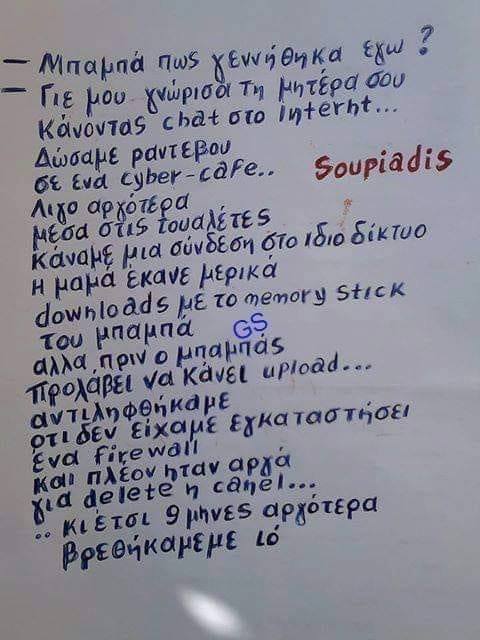 - Μπαμπά πως γεννήθηκα εγω ?
- Γιε μου γνώρισα τη μητέρα σου
κάνοντας chat στο Internt...
Δώσαμε ραντεβου
σε ενα cyber-cafe..
Soupiadis
Λιγο αργότερα
μέσα στις τουαλέτες
κάναμε μια σύνδεση στο ιδιο δίκτυο
η μαμά έκανε μερικά
downloads με το memory stick
του μπαμπά
GS
αλλα πριν ο μπαμπάς
προλάβει να κάνει upload...
αντιληφθήκαμε
οτι δεν είχαμε εγκαταστήσει
ένα firewall
και πλέον ηταν αργά
για delete η canel...
.. κι έτσι 9 μηνες αργότερα
βρεθήκαμεμε ιό